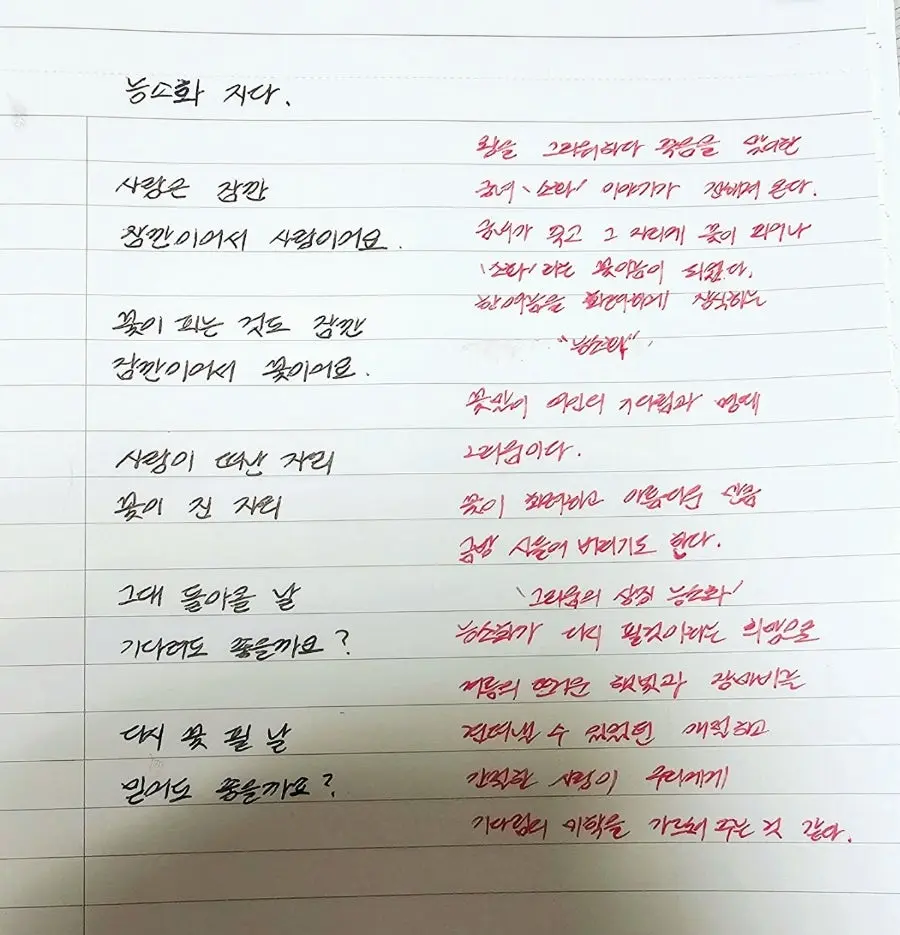 능소화 지다.
사랑은 잠깐
잠깐이어서 사랑이어요.
꽃이 피는 것도 잠깐
잠깐이어서 꽃이어요.
사랑이 떠난 자리
꽃이 진 자리
그대 돌아올 날
기다려도 좋을까요?
다시 꽃 필 날
믿어도 좋을까요?
왕을 그리워하다 죽음을 맞이한
궁녀 '소화' 이야기가 전해져 온다.
궁녀가 죽고 그 자리에 꽃이 피어나
'소화'라는 꽃이름이 되었다.
한여름을 화려하게 장식하는
"능소화"
꽃말이 여인의 기다림과 명예
그리움이다.
꽃이 화려하고 아름다운 만큼
금방 시들어 버리기도 한다.
'그리움의 상징 능소화'
능소화가 다시 필것이라는 희망으로
여름의 뜨거운 햇빛과 장마비를
견뎌낼 수 있었던 애절하고
간절한 사랑이 우리에게
기다림의 미학을 가르쳐 주는 것 같다.